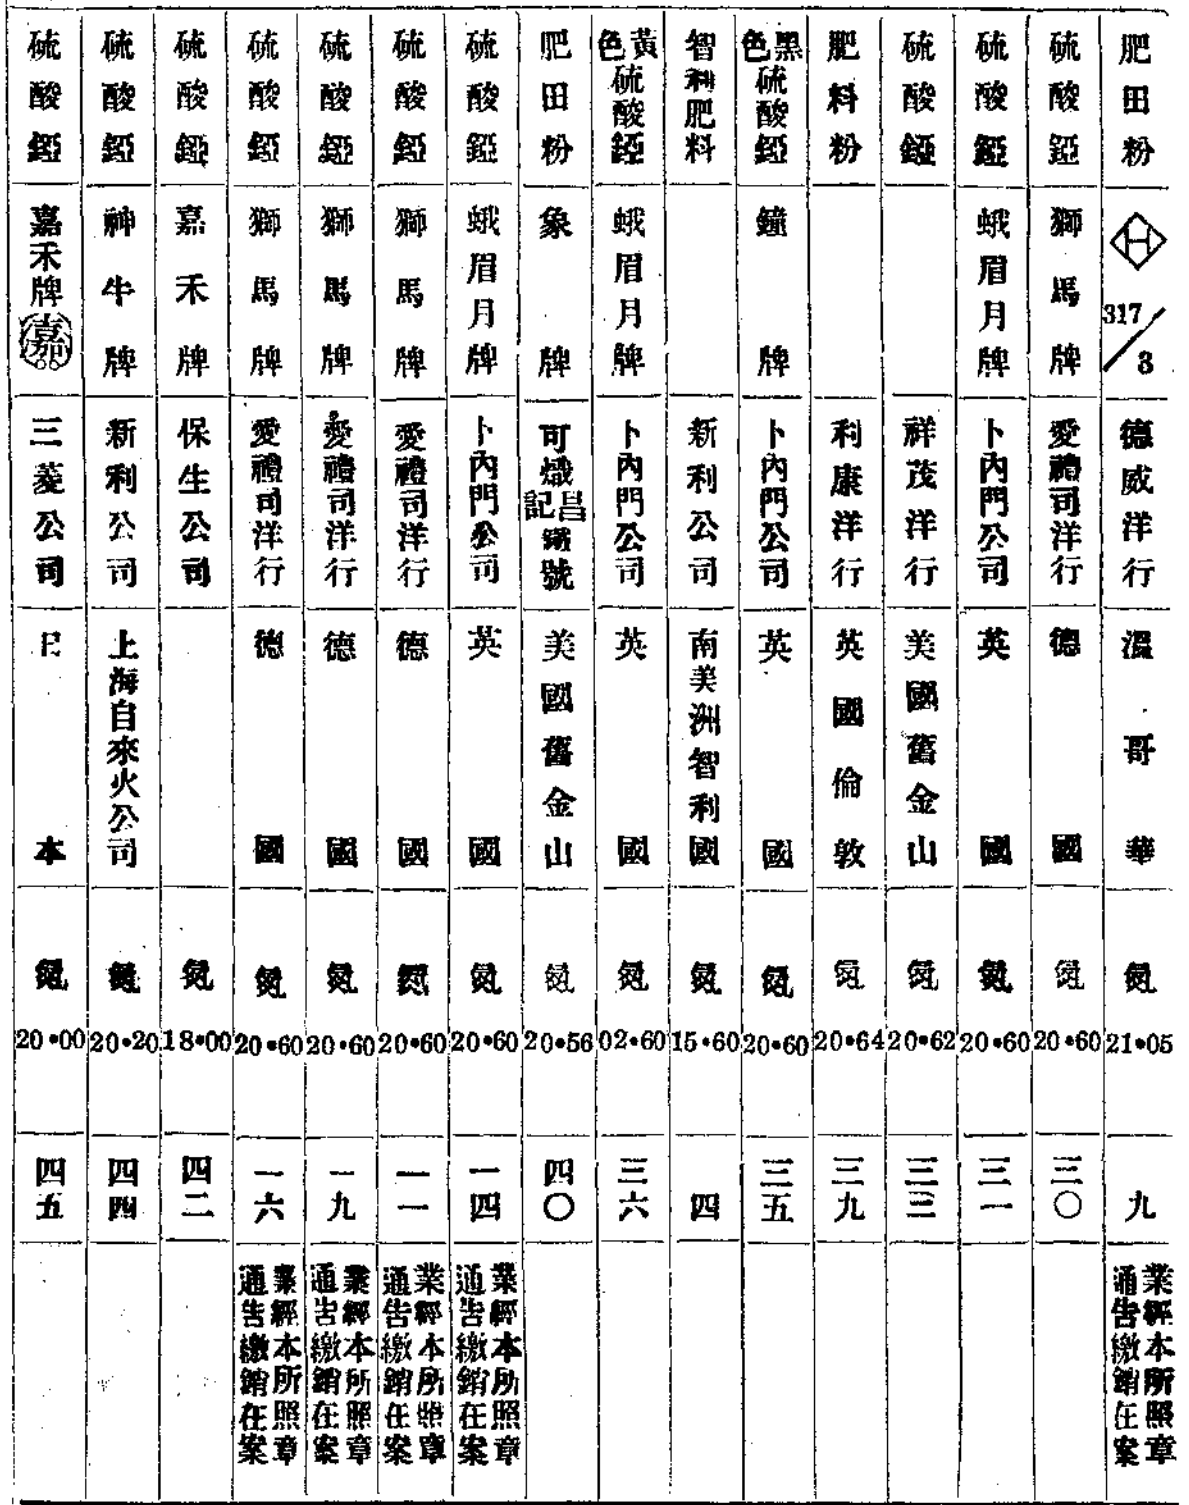 肥田粉 H 317/3 德威洋行 溫哥華 氮 21•05 九 業經本所照章通告繳銷在案
硫酸錏 獅馬牌 愛禮司洋行 德國 氮 20•60 三〇
硫酸錏 蛾眉月牌 卜內門公司 英國 氮 20•60 三一
硫酸錏 祥茂洋行 美國舊金山 氮 20•62 三三
肥料粉 利康洋行 英國倫敦 氮 20•64 三九
黑色硫酸錏 鐘牌 卜內門公司 英國 氮 20•60 三五
智利肥料 新利公司 南美洲智利國 氮 15•60 四
黃色硫酸錏 蛾眉月牌 卜內門公司 英國 氮 02•60 三六
肥田粉 象牌 可熾昌記鐵號 美國舊金山 氮 20•56 四〇
硫酸錏 蛾眉月牌 卜內門公司 英國 氮 20•60 一四 業經本所照章通告繳銷在案
硫酸錏 獅馬牌 愛禮司洋行 德國 氮 20•60 一一 業經本所照章通告繳銷在案
硫酸錏 獅馬牌 愛禮司洋行 德國 氮 20•60 一九 業經本所照章通告繳銷在案
硫酸錏 獅馬牌 愛禮司洋行 德國 氮 20•60 一六 業經本所照章通告繳銷在案
硫酸錏 嘉禾牌 保生公司 氮 18•00 四二
硫酸錏 神牛牌 新利公司 上海自來火公司 氮 20•20 四四
硫酸錏 嘉禾牌 嘉 三菱公司 日本 氮 20•00 四五